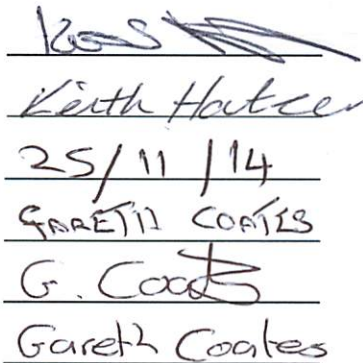 Keith
25/11/14
GARETH COATES
G. Coates
Gareth Coates